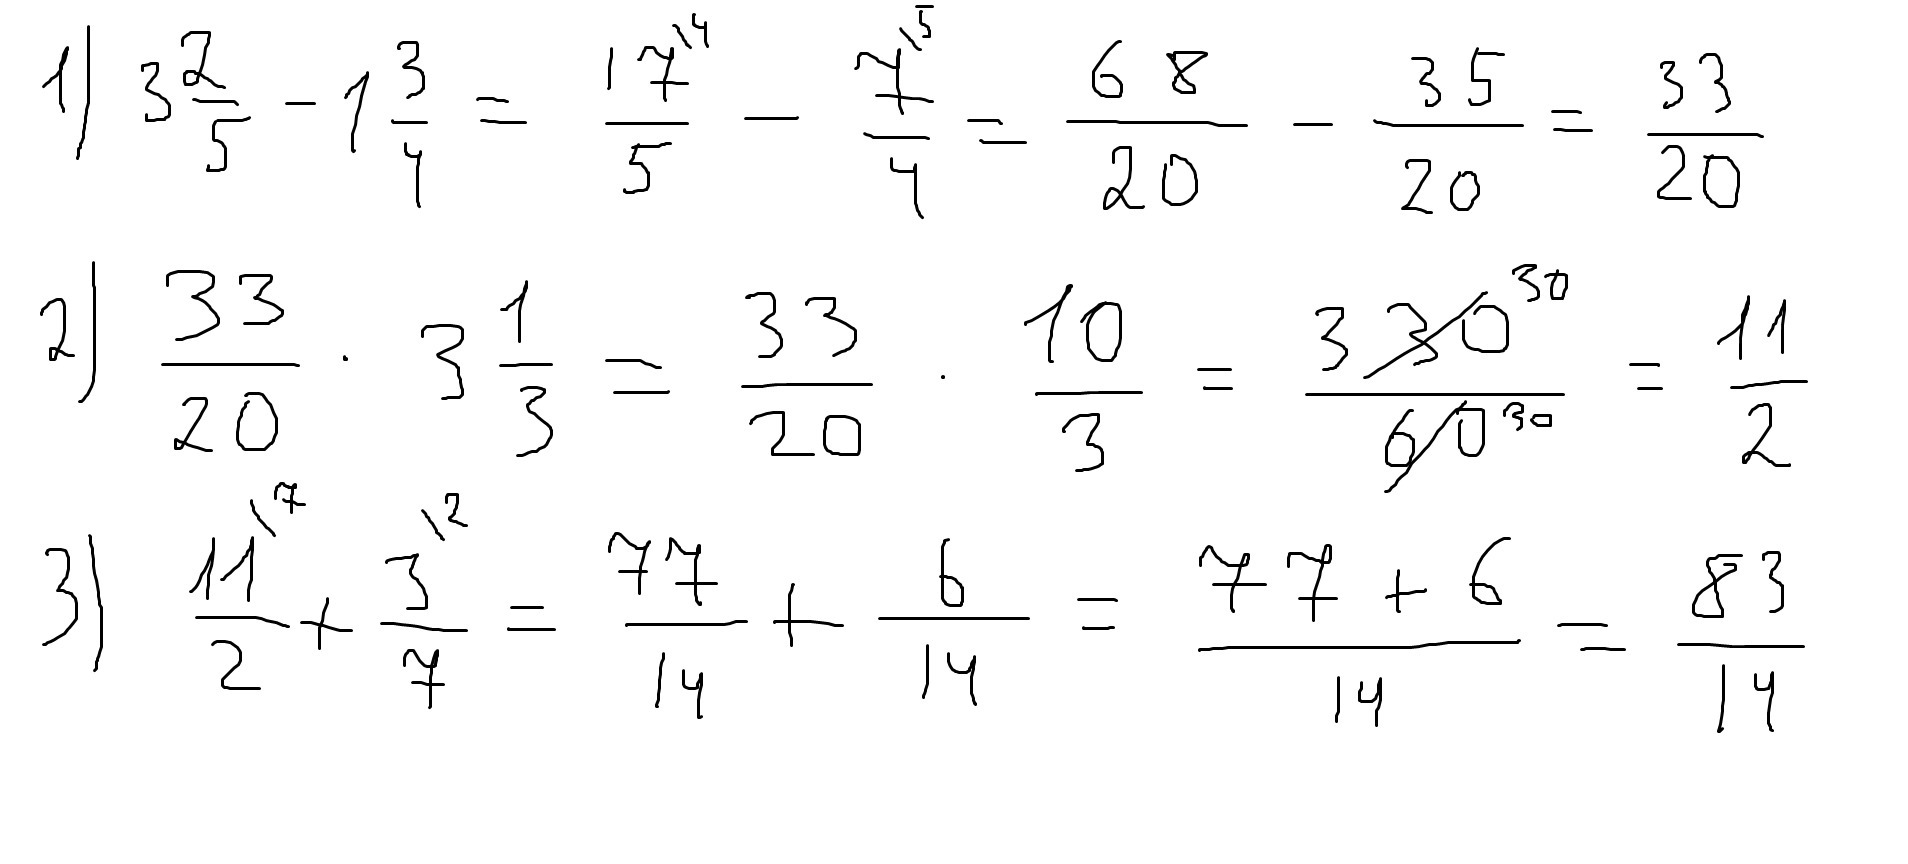 1) 3 2/5 - 1 3/4 = 17\4/5 - 7\5/4 = 68/20 - 35/20 = 33/20
2) 33/20 · 3 1/3 = 33/20 · 10/3 = 330 30/60 30 = 11/2
3) 11\7/2 + 3\2/7 = 77/14 + 6/14 = 77 + 6/14 = 83/14